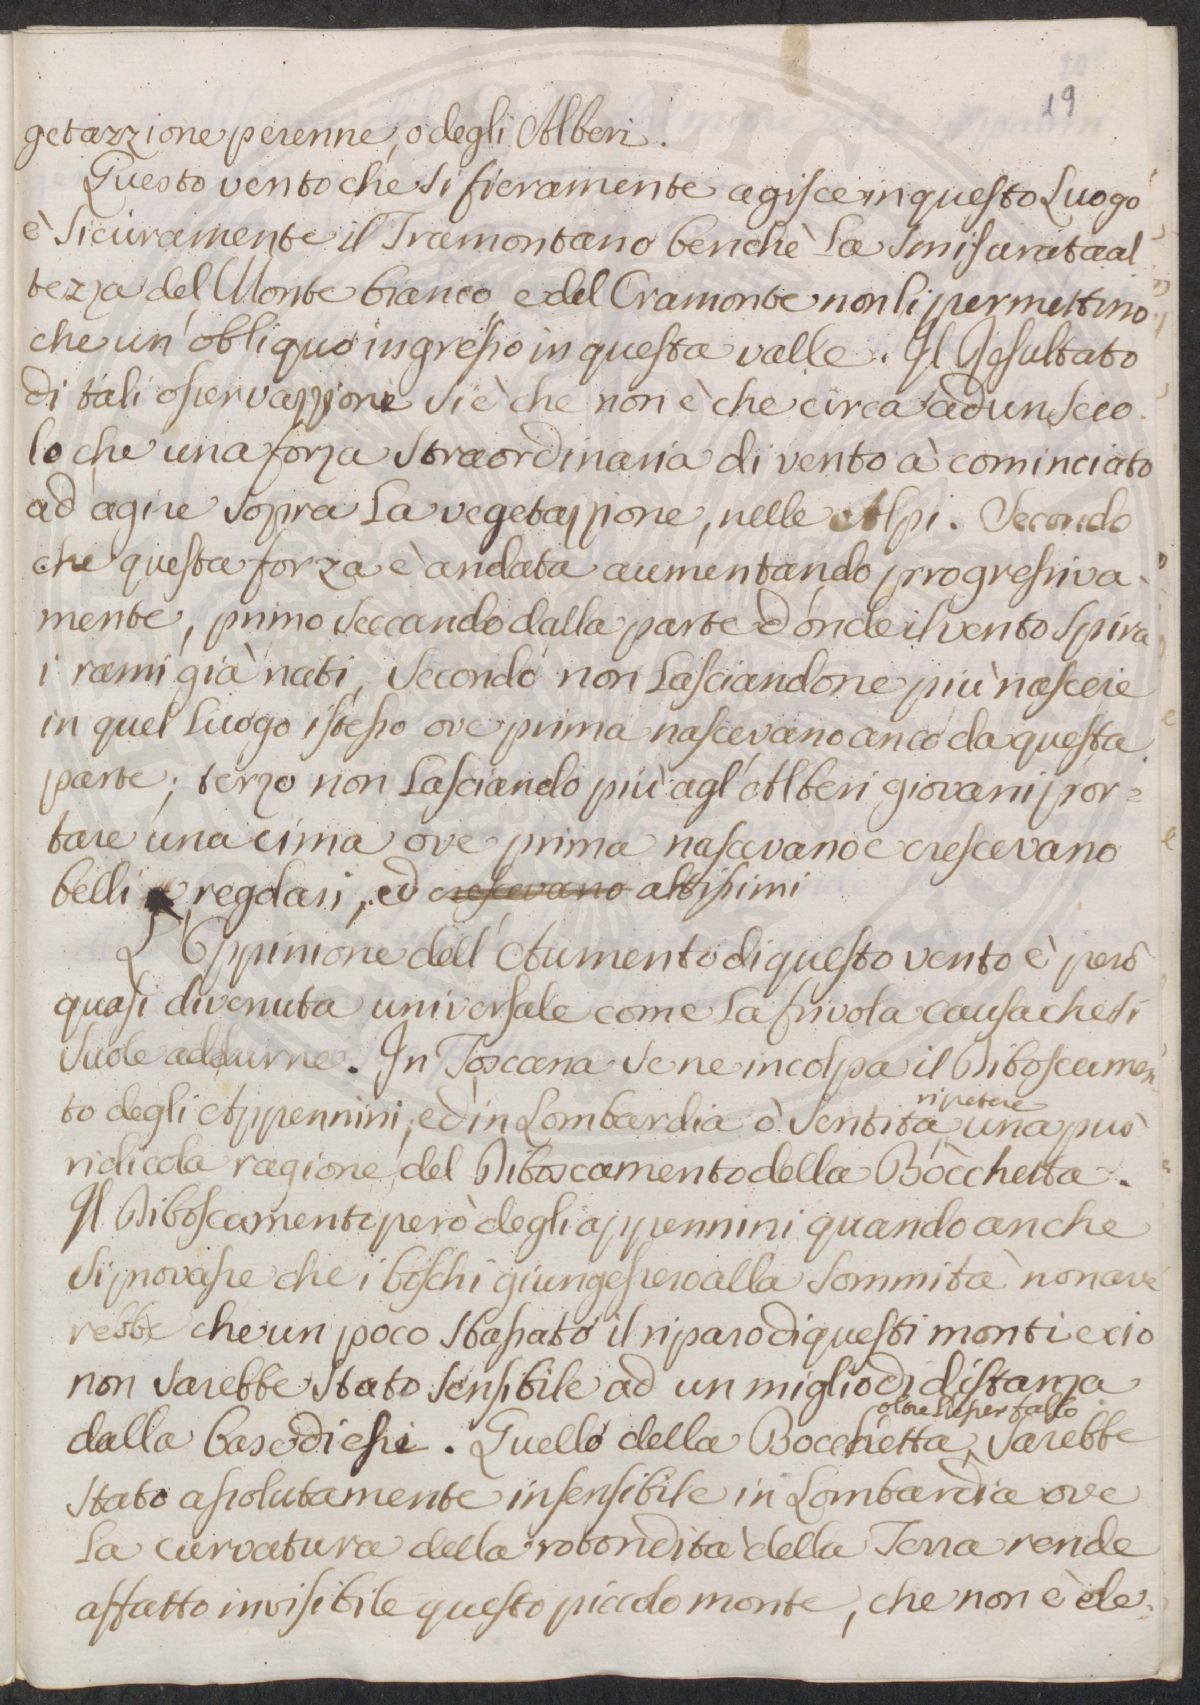 19
getazzione perenne, o degli Alberi.
Questo vento che si fieramente agisce in questo Luogo
è sicuramente il Tramontano benchè la smisurata al
tezza del Monte bianco, e del Cramonte non li permettino
che un' obliquo ingresso in questa valle. Il Resultato
di tali osservazzioni si è che non è che circa ad un seco
lo che una forza straordinaria di vento à cominciato
ad agire sopra la vegetazzione, nelle Alpi. Secondo
che questa forza è andata aumentando progressiva-
mente, primo seccando dalla parte d'onde il vento spira
i rami già nati, secondo non lasciandone più nascere
in quel luogo istesso ove prima nascevano anco da questa
parte; terzo non lasciando più agl'Alberi giovani por=
tare una cima ove prima nascevano e crescevano
belli e regolari, ed crescevano altissimi
L'Oppinione dell'Aumento di questo vento è però
quasi divenuta universale come la frivola causa che si
suole addurne. In Toscana se ne incolpa il Diboscamen-
to degli Appennini, ed in Lombardia ò sentita ripetere una più
ridicola ragione del Diboscamento della Bocchetta.
Il Diboscamento però degli appennini quando anche
si provasse che i boschi giungessero alla sommità non ave
rebbe che un poco sbassato il riparo di questi monti e ciò
non sarebbe stato sensibile ad un miglio di distanza
dalla base di essi. Quello della Bocchetta, oltre l'esser falso sarebbe
stato assolutamente insensibile in Lombardia ove
la curvatura della rotondità della Terra rende
affatto invisibile questo piccolo monte, che non è ele-